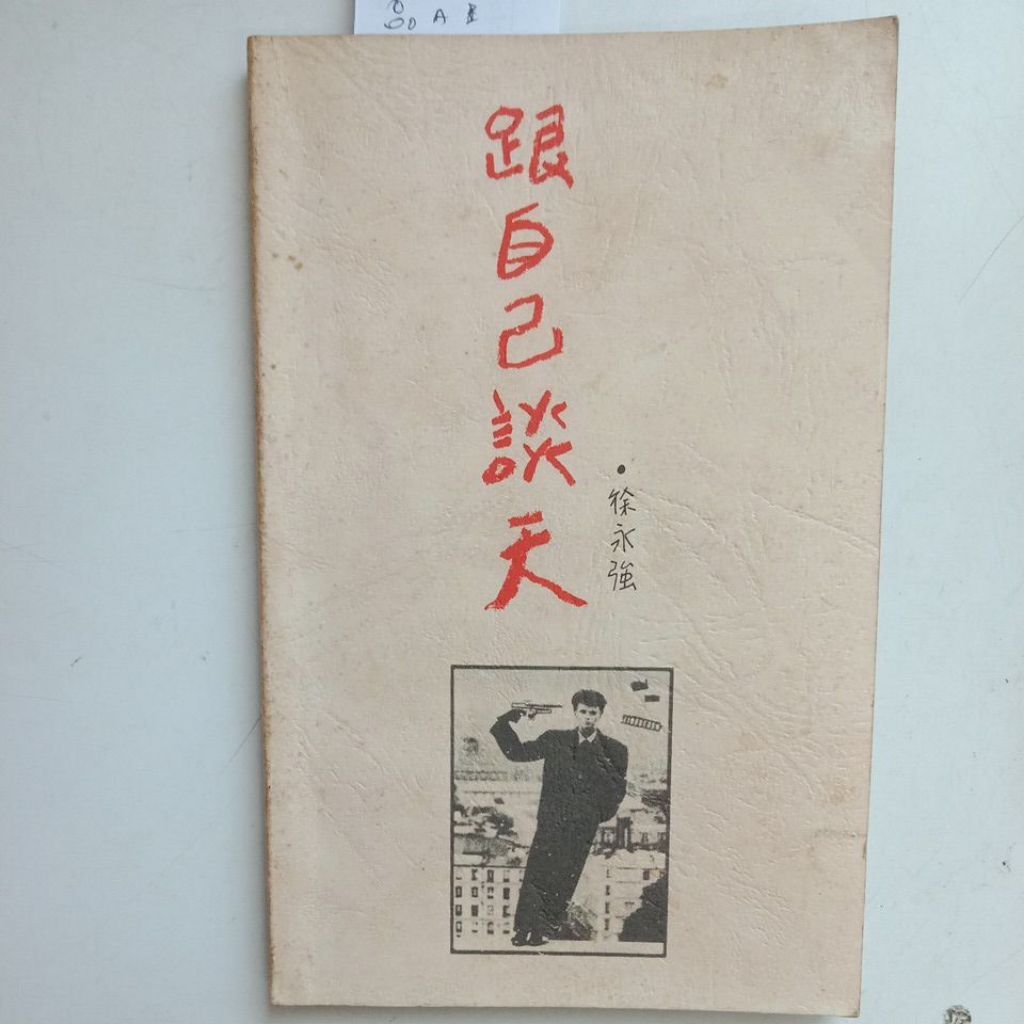 跟自己談天
•徐永強